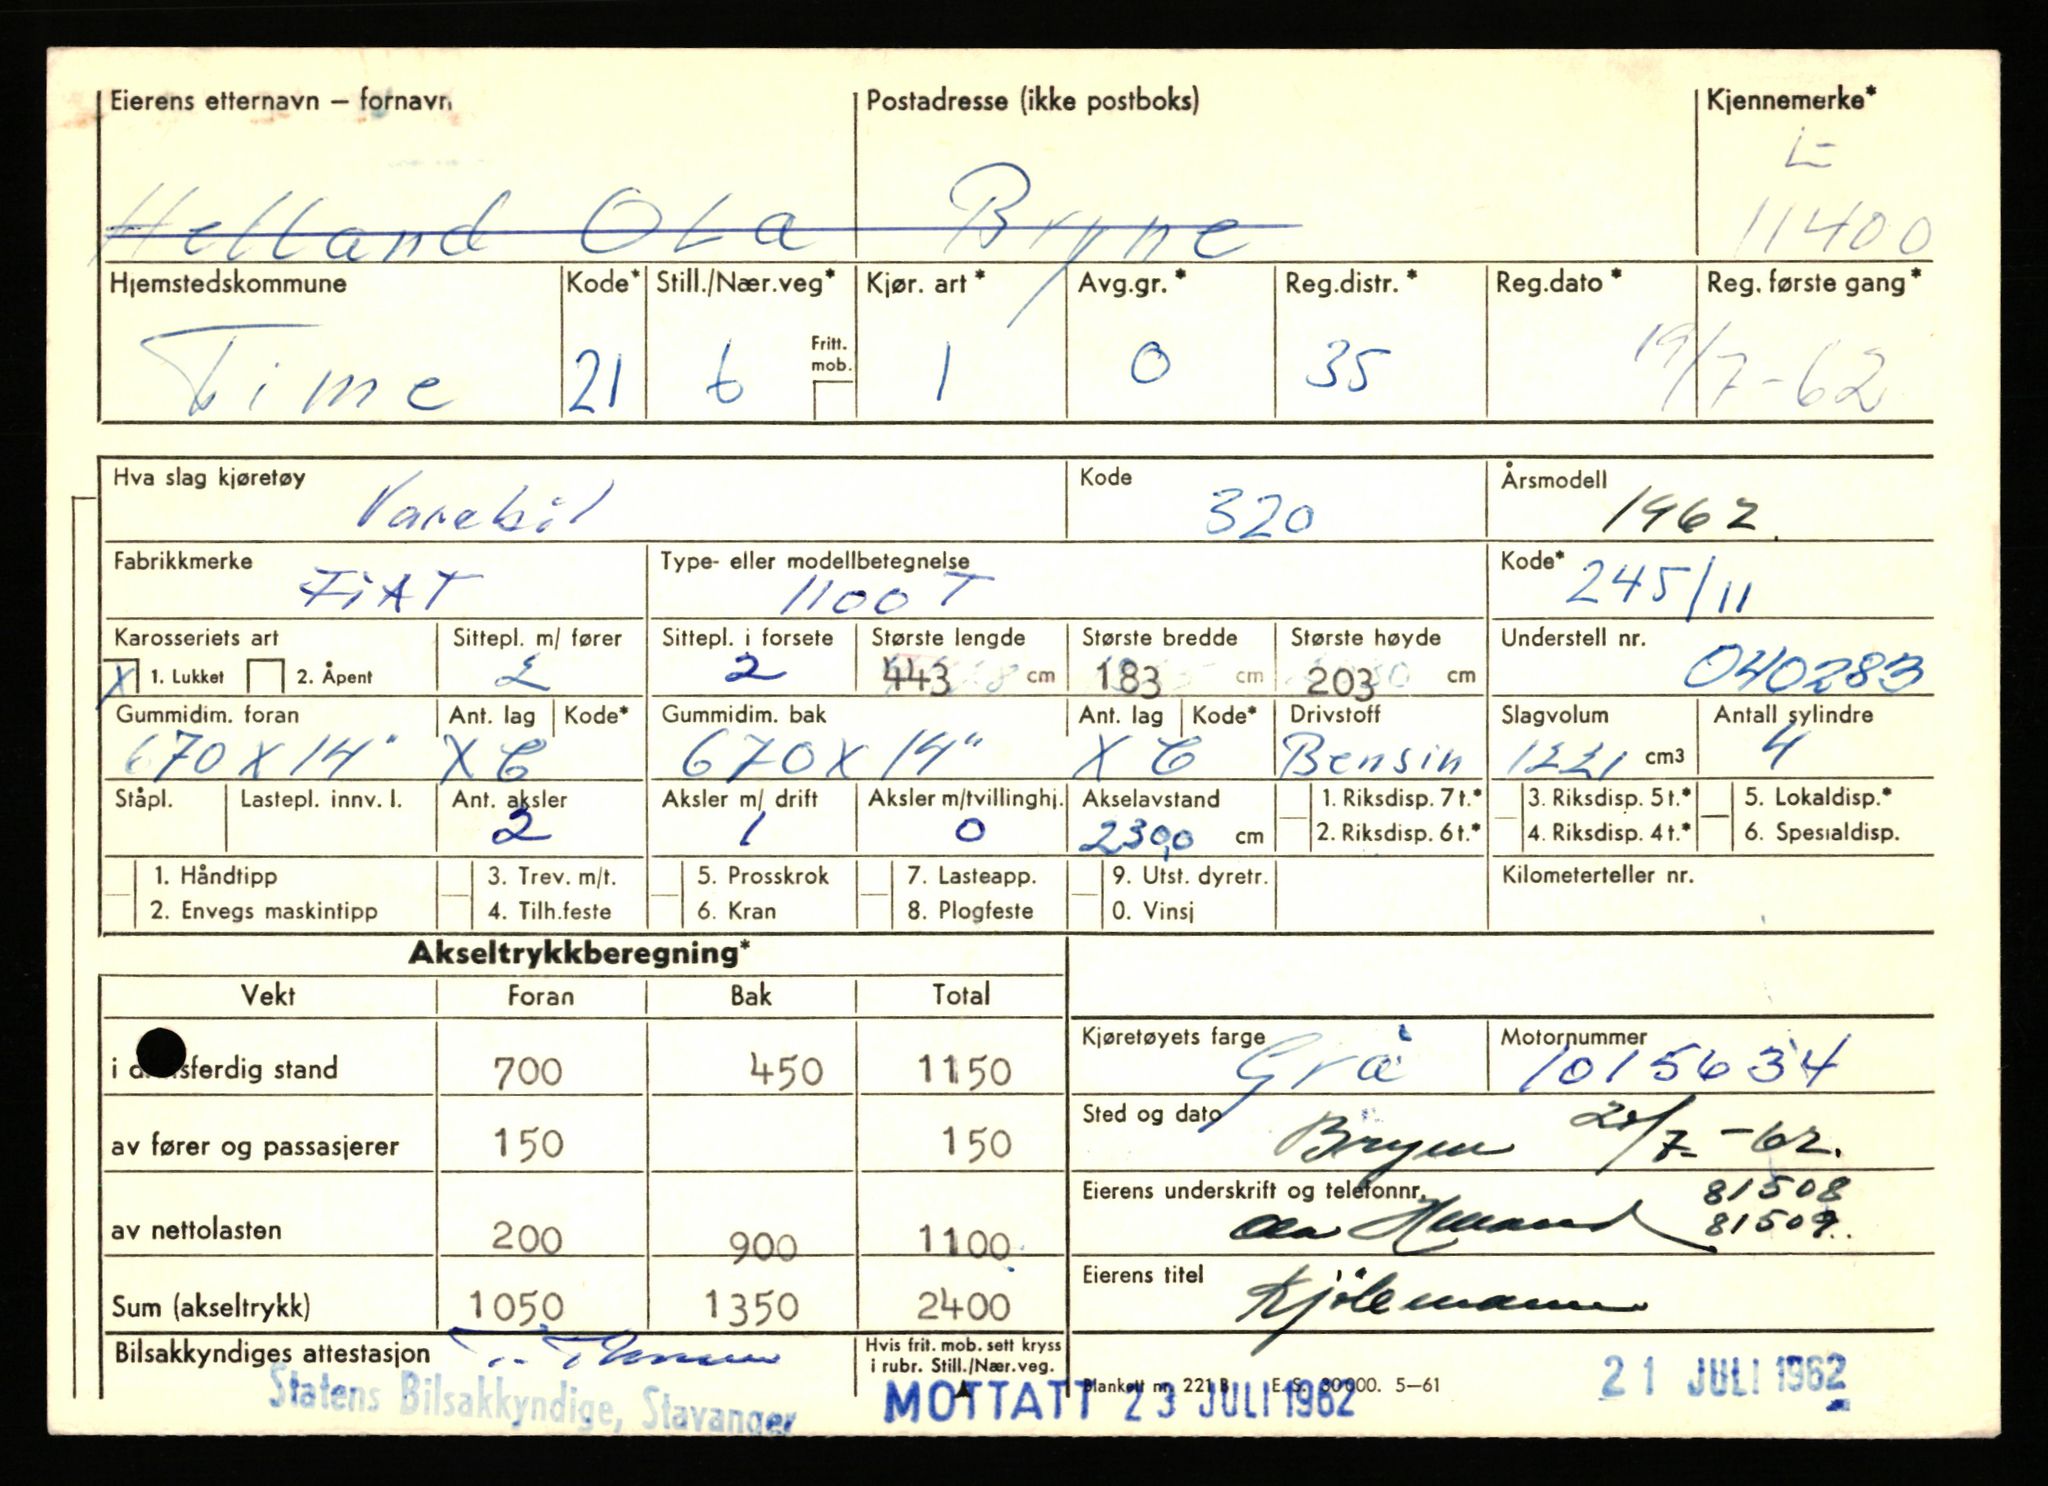 Eierens etternavn – fornavn Postadresse (ikke postboks) Kjennemerke*
L-
Helland Ola Bryne 11400
Hjemstedskommune Kode* Still./Nær.veg* Kjør. art* Avg.gr.* Reg.distr.* Reg.dato* Reg. første gang*
Fritt. mob.
Time 21 6 1 0 35 19/7-62
Hva slag kjøretøy Kode Årsmodell
Varebil 320 1962.
Fabrikkmerke Type- eller modellbetegnelse Kode*
FIAT 1100 T 245/11
Karosseriets art Sittepl. m/ fører Sittepl. i forsete Største lengde Største bredde Største høyde Understell nr.
X 1. Lukket 2. Åpent 2 2 443 cm 183 cm 203 cm 040283
Gummidim. foran Ant. lag Kode* Gummidim. bak Ant. lag Kode* Drivstoff Slagvolum Antall sylindre
670 x 14" X C 670 x 14" X C Bensin 1221 cm3 4
Ståpl. Lastepl. innv. l. Ant. aksler Aksler m/ drift Aksler m/tvillinghj. Akselavstand 1. Riksdisp. 7 t.* 3. Riksdisp. 5 t.* 5. Lokaldisp.*
2 1 0 230,0 cm 2. Riksdisp. 6 t.* 4. Riksdisp. 4 t.* 6. Spesialdisp.
1. Håndtipp 3. Trev. m/t. 5. Prosskrok 7. Lasteapp. 9. Utst. dyretr. Kilometerteller nr.
2. Envegs maskintipp 4. Tilh.feste 6. Kran 8. Plogfeste 0. Vinsj
Akseltrykkberegning*
Vekt Foran Bak Total
Kjøretøyets farge Motornummer
i d sferdig stand 700 450 1150 Grå 1015634
Sted og dato
av fører og passasjerer 150 150 Bryne 20/7-62.
Eierens underskrift og telefonnr. 81508
av nettolasten 200 900 1100 Ola Helland 81509.
Eierens titel
Sum (akseltrykk) 1050 1350 2400 Kjölemann
Bilsakkyndiges attestasjon Hvis frit. mob. sett kryss
i rubr. Still./Nær.veg.
Statens Bilsakkyndige, Stavanger MOTTATT 23 JULI 1962 Blankett nr. 221 B E. S. 30 000. 5–61 21 JULI 1962